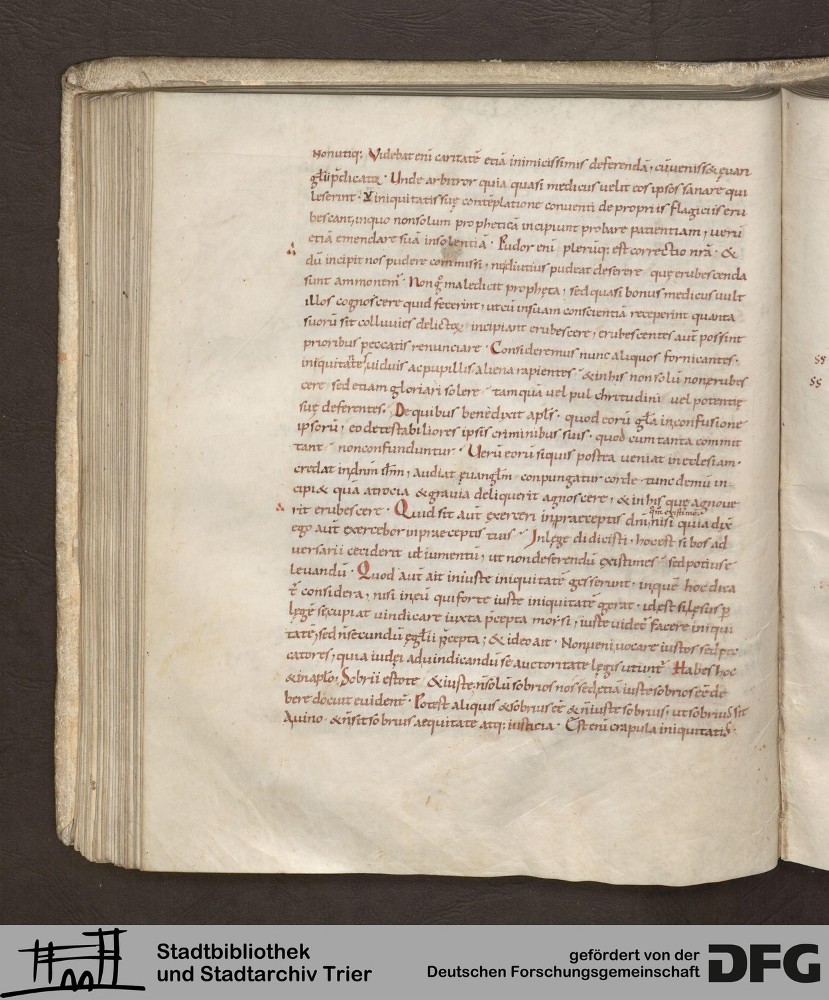 Non utiq; Videbat eni caritatē etiā inimicissimis deferendā, cū venisset euan
glii p̄dicator. Unde arbitror quia quasi medicus uelit eos ipsos sanare qui
leserint. Ut iniquitatis suę contēplatione conuenti de propriis flagiciis eru
bescant, in quo non solum prophetica incipiunt probare patientiam, uerū
etiā emendare suā insolentiā. Pudor eni plerūq; est correctio nr̄a. &
dū incipit nos pudere commissi, ne diutius pudeat deserere quę erubescenda
sunt ammonem̄. Non g̊ maledicit propheta, sed quasi bonus medicus uult
illos cognoscere quid fecerint, ut cū in suam conscientiā receperint quanta
suorū sit colluuies delictoꝝ incipiant erubescere, erubescentes aut̄ possint
prioribus peccatis renunciare. Consideremus nunc aliquos fornicantes.
iniquitate uiduis ac pupillis aliena rapientes & in his non solū non erubes
cere, sed etiam gloriari solere tamquā uel pulchritudini uel potentię
suę deferentes. De quibus benedixit apls. quod eorū gła in confusione
ipsorū, eo detestabiliores ipsis criminibus suis. quod cum tanta commit
tant non confunduntur. Uerū eorū siquis postea ueniat in ecclesiam.
credat in dnm ihm, audiat euanglm conpungatur corde. tunc demū in
cipi& quā atrocia & grauia deliquerit agnoscere, & in his quę agnoue
rit erubescere. Quid sit aut̄ exerceri in praeceptis dni, nisi quia dix̄
ego aut̄ exercebor in praeceptis tuis. In lege didicisti. hoc est si bos ad
uersarii ceciderit uel iumentū, ut non deserendū existimes sed potius e
leuandū. Quod aut̄ ait iniuste iniquitatē gesserunt. in quē hoc dica
t̄ considera, nisi in eū qui forte iuste iniquitatē gerat. id est si lęsus p̱
lęgē se cupiat uindicare iuxta p̄cepta moysi, iuste uidet̄ facere iniqui
tatē, sed n̄ secundū euglii p̄cepta; & ideo ait. Non ueni uocare iustos sed pec
catores, quia iudęi ad uindicandū se auctoritate lęgis utunt̄. Habes hoc
& in aplo. Sobrii estote & iuste, n̄ solū sobrios nos sed etiā iuste sobrios eē de
bere docuit euident̄. Potest aliquis & sobrius eē & n̄ iuste sobrius. ut sobrius sit
A uino. & n̄ sit sobrius aequitate atq; iusticia. Est eni crapula iniquitatis.
Stadtbibliothek
und Stadtarchiv Trier
gefördert von der
Deutschen Forschungsgemeinschaft
DFG